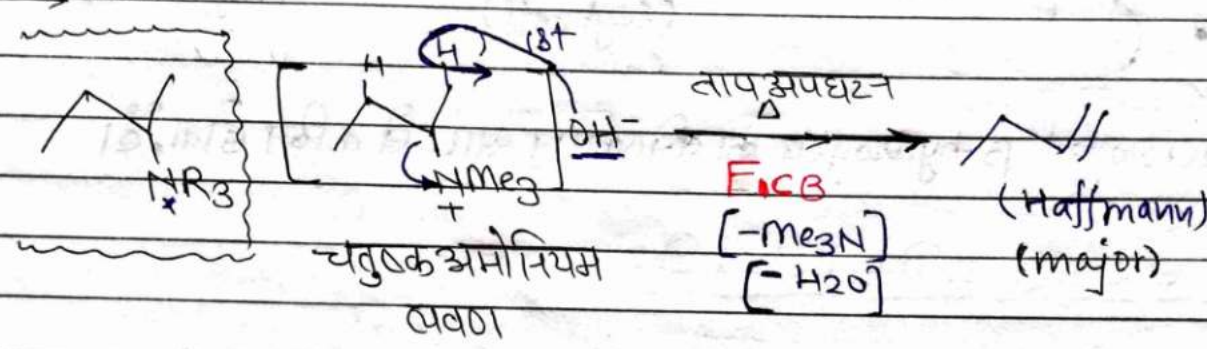 H H δ+
NR3 [ NMe3 + ] OH⁻ ताप अपघटन
Δ
E1CB
[-Me3N]
[-H2O]
(Haffmann)
(major)
चतुष्क अमोनियम
लवण